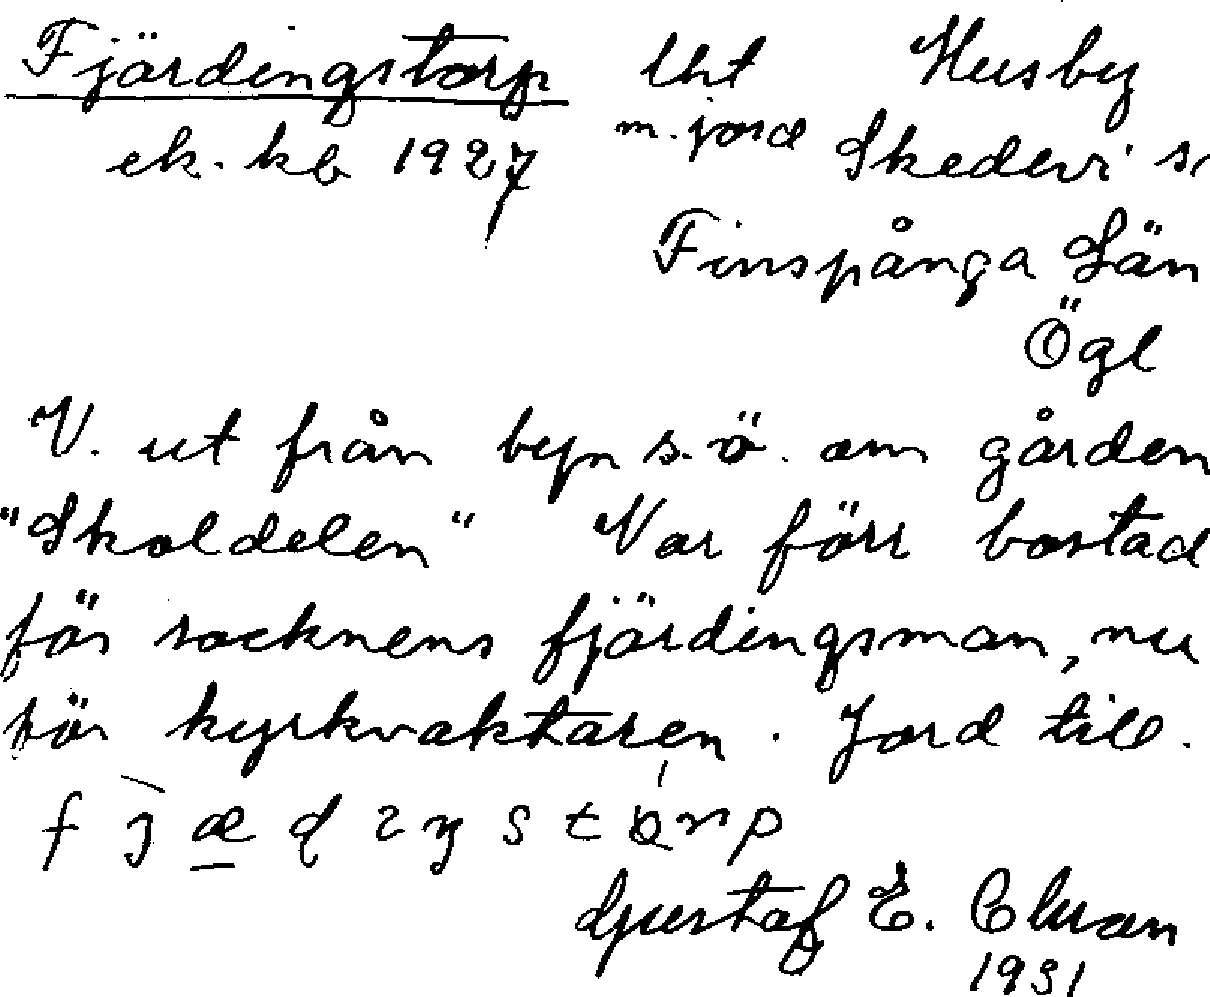 Fjärdingstorp lht Husby
ek. kb 1927 m. jord Skedevi s
Finspånga Län
Ögl
V. ut från byn s.ö. om gården
"Skoldelen" Var förr bostad
för socknens fjärdingsman, nu
för kyrkvaktaren. Jord till.
Gustaf E.
1931